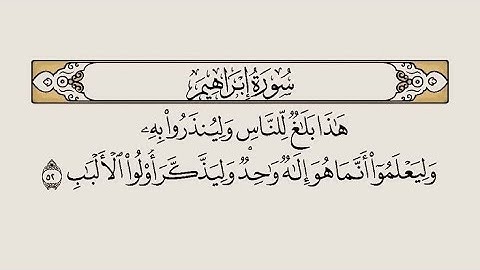 سُورَةُ إِبْرَاهِيمَ
هَٰذَا بَلَٰغٌ لِّلنَّاسِ وَلِيُنذَرُوا۟ بِهِۦ
وَلِيَعْلَمُوٓا۟ أَنَّمَا هُوَ إِلَٰهٌ وَٰحِدٌ وَلِيَذَّكَّرَ أُو۟لُوا۟ ٱلْأَلْبَٰبِ ٥٢